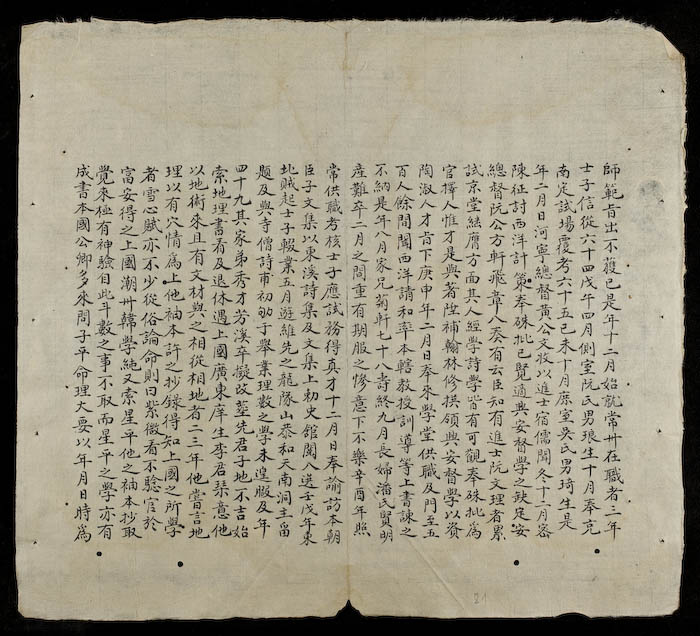 師範旨出不獲已是年十二月始就常卅在職者三年
士子信從六十四戊午四月側室阮氏男琅生十月奉充
南定試場覆考六十五己未十月庶室吳氏男琦生是
年二月日河寧總督黃公文收以進士宿儒聞冬十二月密
陳征討西洋計策奉硃批已覽適興安督學之缺定安
總督阮公方軒飛章八奏有云臣知有進士阮文理者累
試京堂絲層方面其人經學詩學皆有可觀奉硃批爲
官擇人惟才是與著陞補翰林修撰領興安督學以資
陶淑人才旨下庚申年二月日奉來學堂供職及門至五
百人餘間聞西洋請和率本轄教授訓導等上書諫之
不納是年八月家兄菊軒七十八壽終九月長婦潘氏賢明
產難卒二月之間重有期服之慘意下不樂辛酉年照
常供職考核士子應試務得真才十二月奉諭訪本朝
臣子文集以東溪詩集及文集上勑史舘閱八選壬戌年東
北賊起士子輟業五月遊維先之龍隊山恭和天南洞主畱
題及與寺僧詩甫初幼于舉業理數之學未遑暇及年
四十九其家弟秀才芳溪卒擬改塟先君子地不吉始
索地理書看及退休遇上國廣東岸生李君琹意他
以地術來且有文材與之相從相地者二三年他嘗言地
理以有穴情爲上他袖本許之抄錄得知上國之所學
者雪心賦亦不少從俗論命則曰紫微看不驗官於
富安得之上國潮州韓學純又索星平他之袖本抄取
覺來極有神驗自此斗數之事不取而星平之學亦有
成書本國公卿多來問子平命理大要以年月日時爲
21